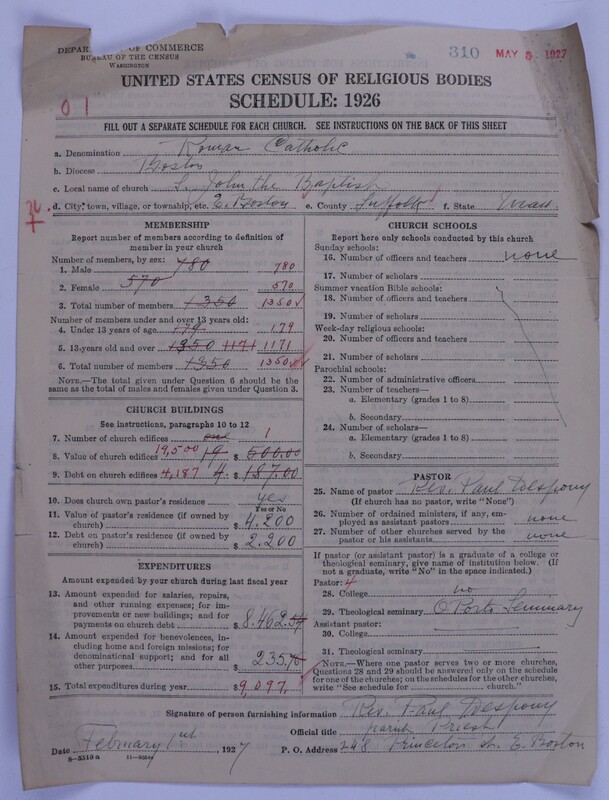 DEPAR OF COMMERCE
BUREAU OF THE CENSUS
WASHINGTON
310 MAY 3, 1927
UNITED STATES CENSUS OF RELIGIOUS BODIES
SCHEDULE: 1926
01
FILL OUT A SEPARATE SCHEDULE FOR EACH CHURCH. SEE INSTRUCTIONS ON THE BACK OF THIS SHEET
a. Denomination Roman Catholic
b. Diocese Boston
c. Local name of church S. John the Baptist
d. City, town, village, or township, etc. E. Boston e. County Suffolk f. State Mass.
MEMBERSHIP
Report number of members according to definition of
member in your church
Number of members, by sex:
1. Male 780 780
2. Female 570 570
3. Total number of members 1350 1350
Number of members under and over 13 years old:
4. Under 13 years of age 179 179
5. 13 years old and over 1350 1171 1171
6. Total number of members 1350 1350
NOTE.—The total given under Question 6 should be
the same as the total of males and females given under Question 3.
CHURCH BUILDINGS
See instructions, paragraphs 10 to 12
7. Number of church edifices one 1
8. Value of church edifices 19,500 19 $ 500.00
9. Debt on church edifices 4,187 4. $ 187.00
10. Does church own pastor's residence yes
Yes or No
11. Value of pastor's residence (if owned by
church) $ 4.200
12. Debt on pastor's residence (if owned by
church) $ 2.200
EXPENDITURES
Amount expended by your church during last fiscal year
13. Amount expended for salaries, repairs,
and other running expenses; for im-
provements or new buildings; and for
payments on church debt $ 8.462.54
14. Amount expended for benevolences, in-
cluding home and foreign missions; for
denominational support; and for all
other purposes $
15. Total expenditures during year $9,097.
CHURCH SCHOOLS
Report here only schools conducted by this church
Sunday schools:
16. Number of officers and teachers none
17. Number of scholars
Summer vacation Bible schools:
18. Number of officers and teachers
19. Number of scholars
Week-day religious schools:
20. Number of officers and teachers
21. Number of scholars
Parochial schools:
22. Number of administrative officers
23. Number of teachers—
a. Elementary (grades 1 to 8)
b. Secondary
24. Number of scholars—
a. Elementary (grades 1 to 8)
b. Secondary
PASTOR
25. Name of pastor Rev. Paul
(If church has no pastor, write "None")
26. Number of ordained ministers, if any, em-
ployed as assistant pastors none
27. Number of other churches served by the
pastor or his assistants none
If pastor (or assistant pastor) is a graduate of a college or
theological seminary, give name of institution below. (If
not a graduate, write "No" in the space indicated.)
Pastor: 4
28. College no
29. Theological seminary O Porto Seminary
Assistant pastor:
30. College
31. Theological seminary
NOTE.—Where one pastor serves two or more churches,
Questions 28 and 29 should be answered only on the schedule
for one of the churches; on the schedules for the other churches,
write "See schedule for church."
Signature of person furnishing information Rev. Paul
Official title parish Priest
Date February 1st, 1927 P. O. Address 248 Princeton St. E. Boston
8-5319 a